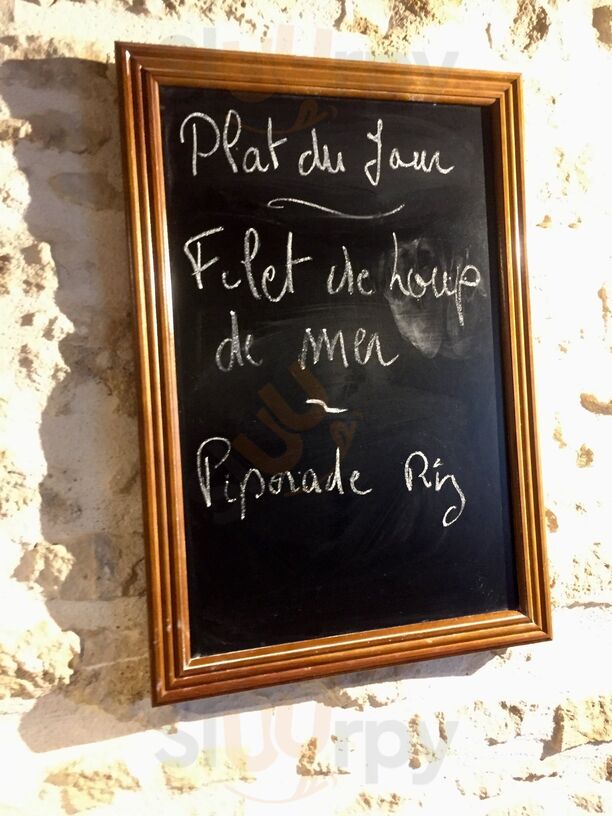 sluurpy
Plat du Jour
Filet de Loup
de mer
Piporade Riz
sluurpy